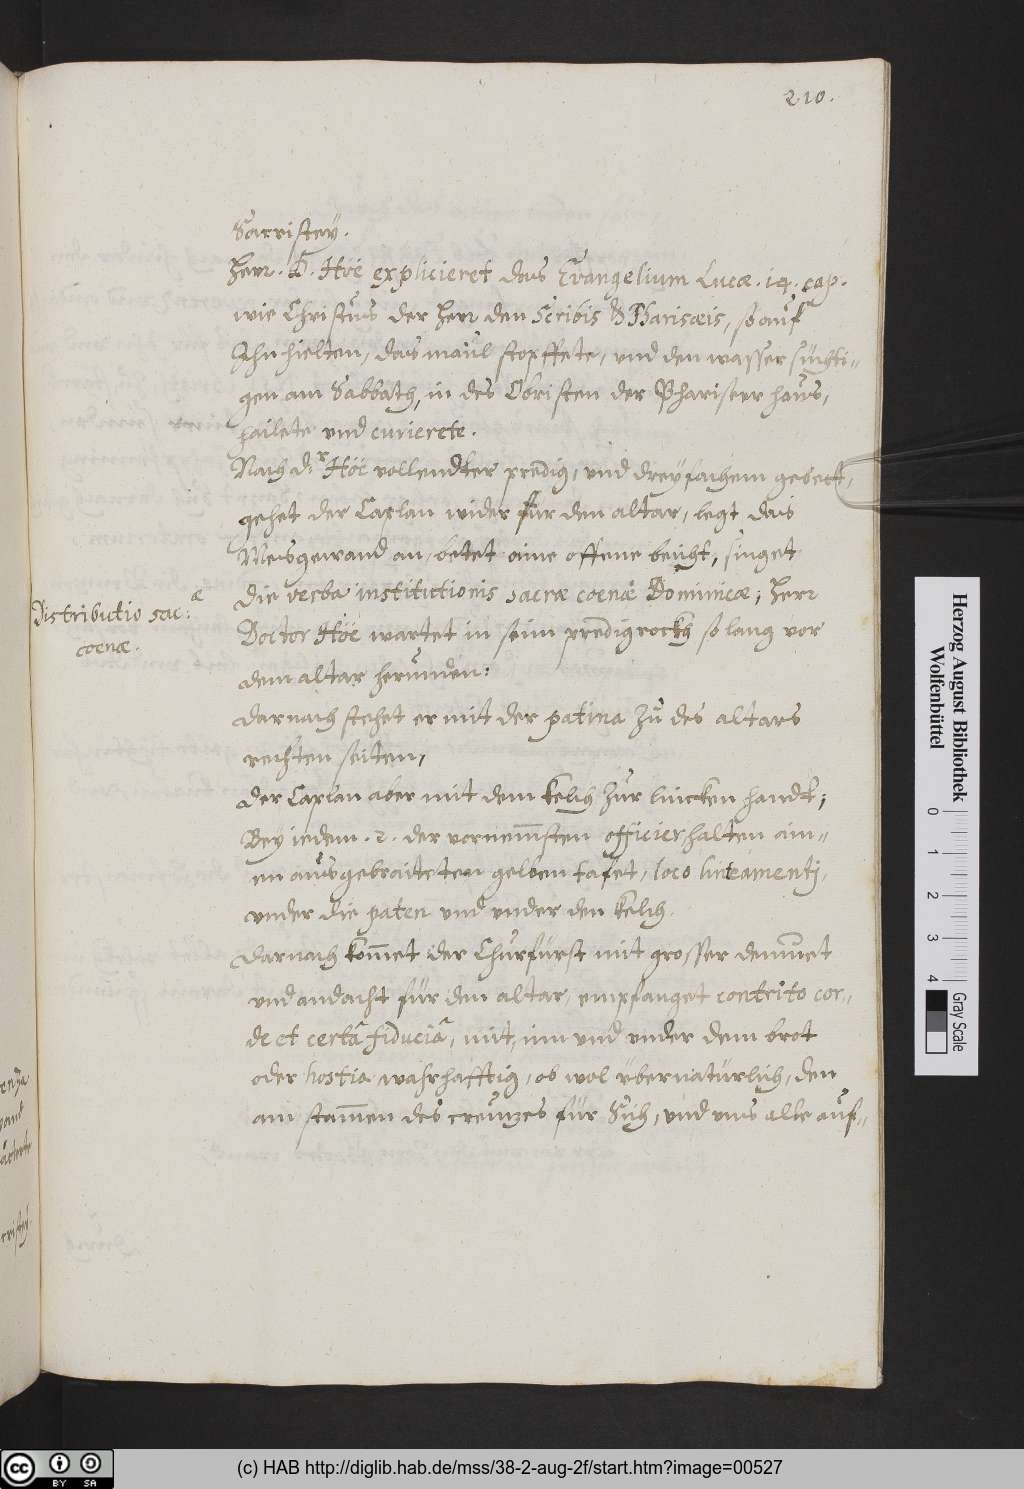 210.
Sacristey.
Herr. D. Höe explicieret das Evangelium Lucæ. 14. cap.
wie Christus der Herr den Scribis & Pharisæis, so auf
Ihn hielten, das maül stopffete, und den wassersüchti-
gen am Sabbath, in des Obristen der Phariseer haus,
hailete und curierete.
Nach d.r Höe vollendter predig, und dreyfachem gebett,
gehet der Caplan wider für den altar, legt das
Mesgewand an, betet aine offene beicht, singet
die verba institutionis sacræ coenæ Dominicæ; Herr
Doctor Höe wartet in seim predigrockh so lang vor
dem altar herunden:
Distributio sac:æ
coenæ.
darnach stehet er mit der patina zu des altars
rechten seiten,
der Caplan aber mit dem kelch zur lincken handt;
Bey iedem .2. der vornemsten officier halten ain-
en ausgebraiteten gelben tafet, loco linteamenti,
under die paten und under den kelch.
darnach kom̄et der Churfürst mit grosser demuet
und andacht für den altar, empfanget contrito cor-
de et certâ fiduciâ, mit, inn und under dem brot
oder hostia wahrhafftig, ob wol übernatürlich, den
am stam̄en des creutzes für Sich, und uns alle auf-
Herzog August Bibliothek
Wolfenbüttel
0 1 2 3 4
Gray Scale
cc BY SA
(c) HAB http://diglib.hab.de/mss/38-2-aug-2f/start.htm?image=00527